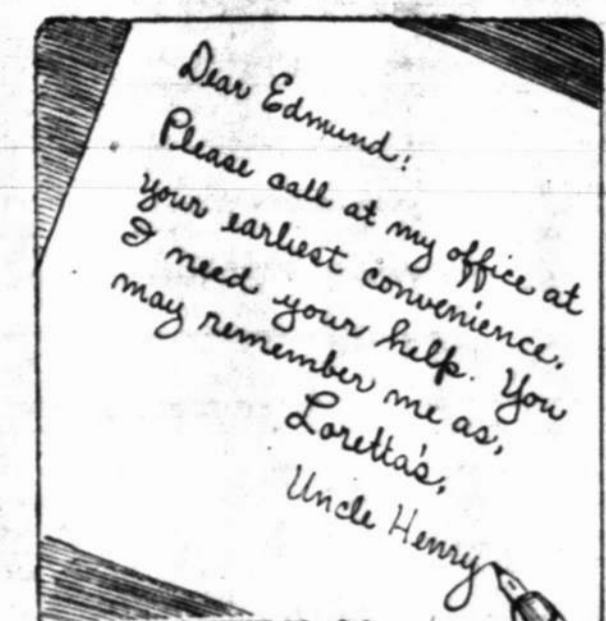 Dear Edmund:
Please call at my office at
your earliest convenience.
I need your help. You
may remember me as,
Loretta's,
Uncle Henry